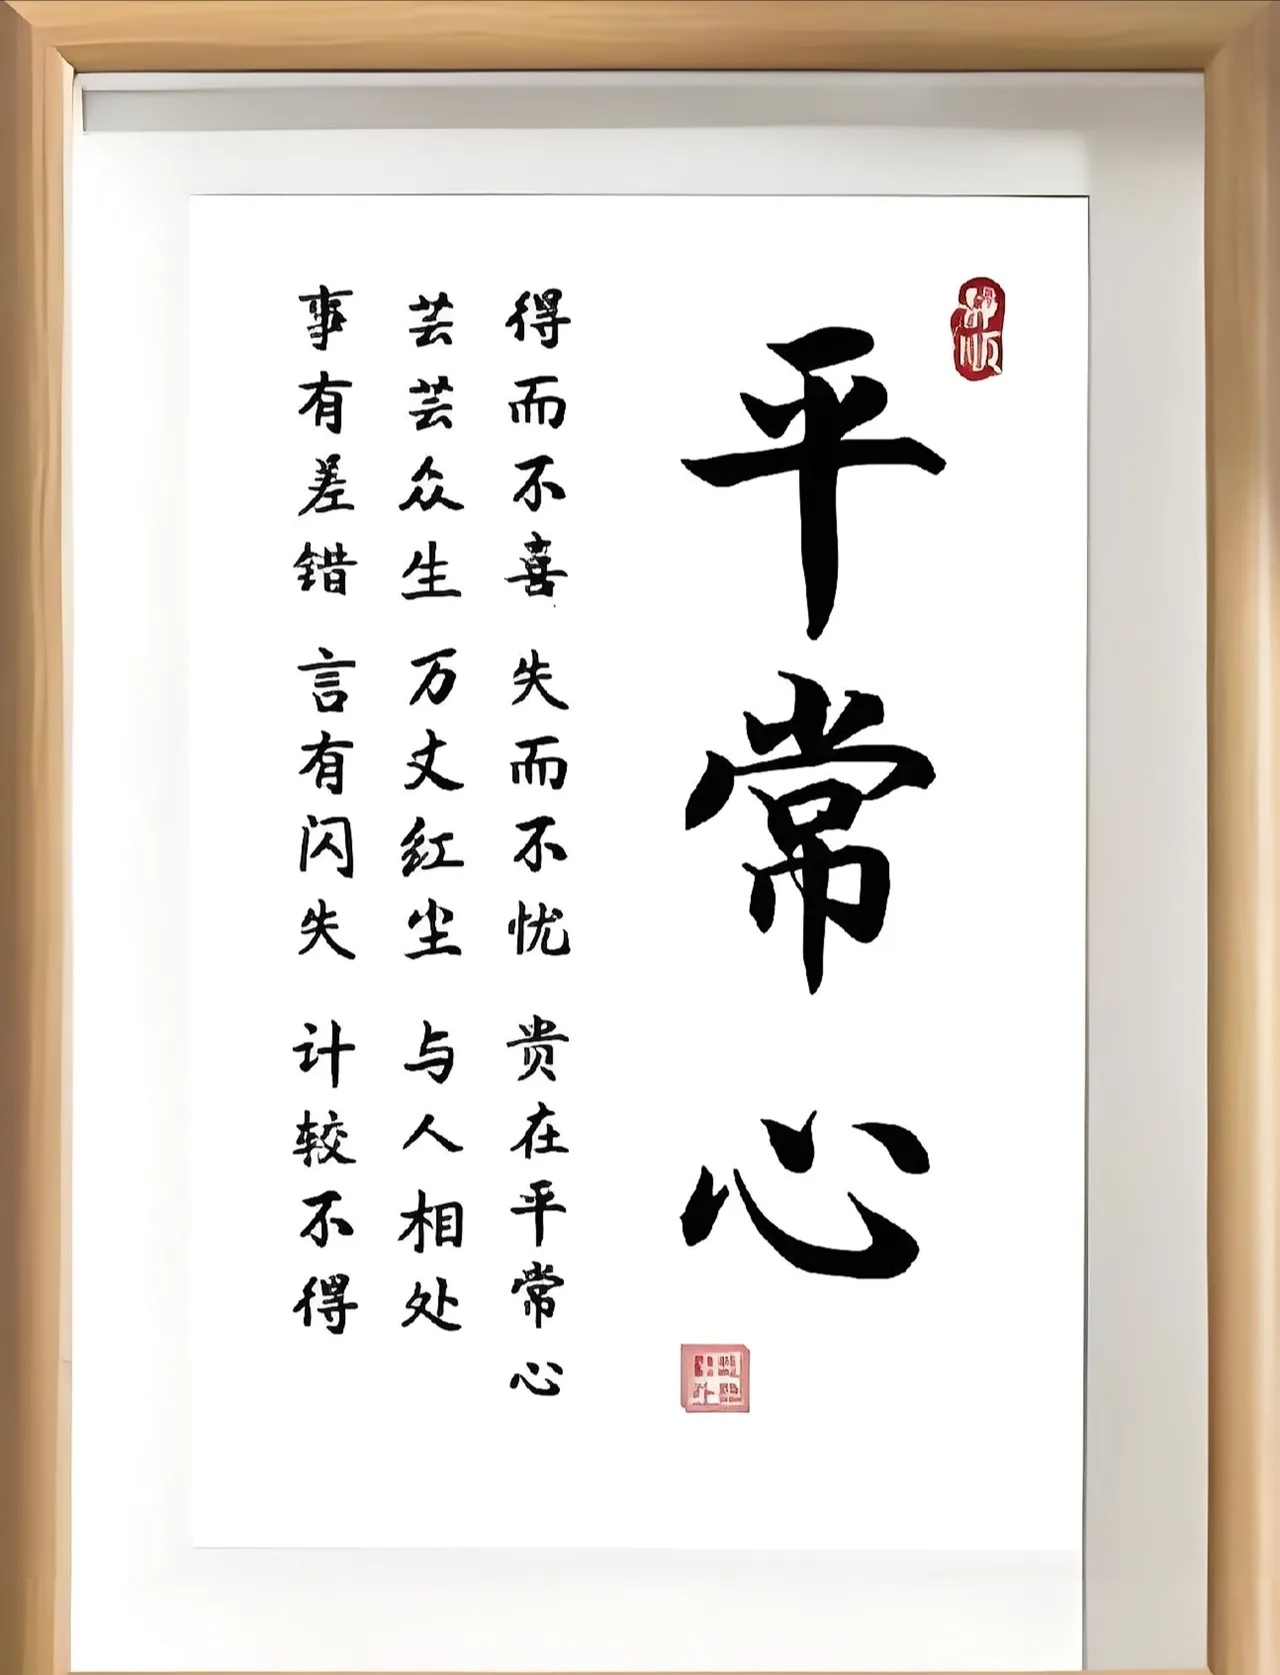 平常心
得而不喜 失而不忧 贵在平常心
芸芸众生 万丈红尘 与人相处
事有差错 言有闪失 计较不得